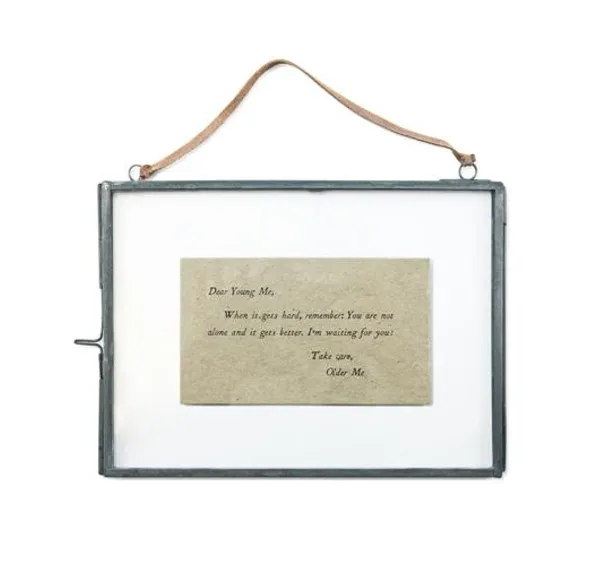 Dear Young Me,
When it gets hard, remember: You are not
alone and it gets better. I'm waiting for you!
Take care,
Older Me